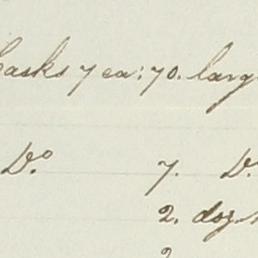 Casks 7 ea: 70. larg
Do. 7. Do.
2. doz.
2